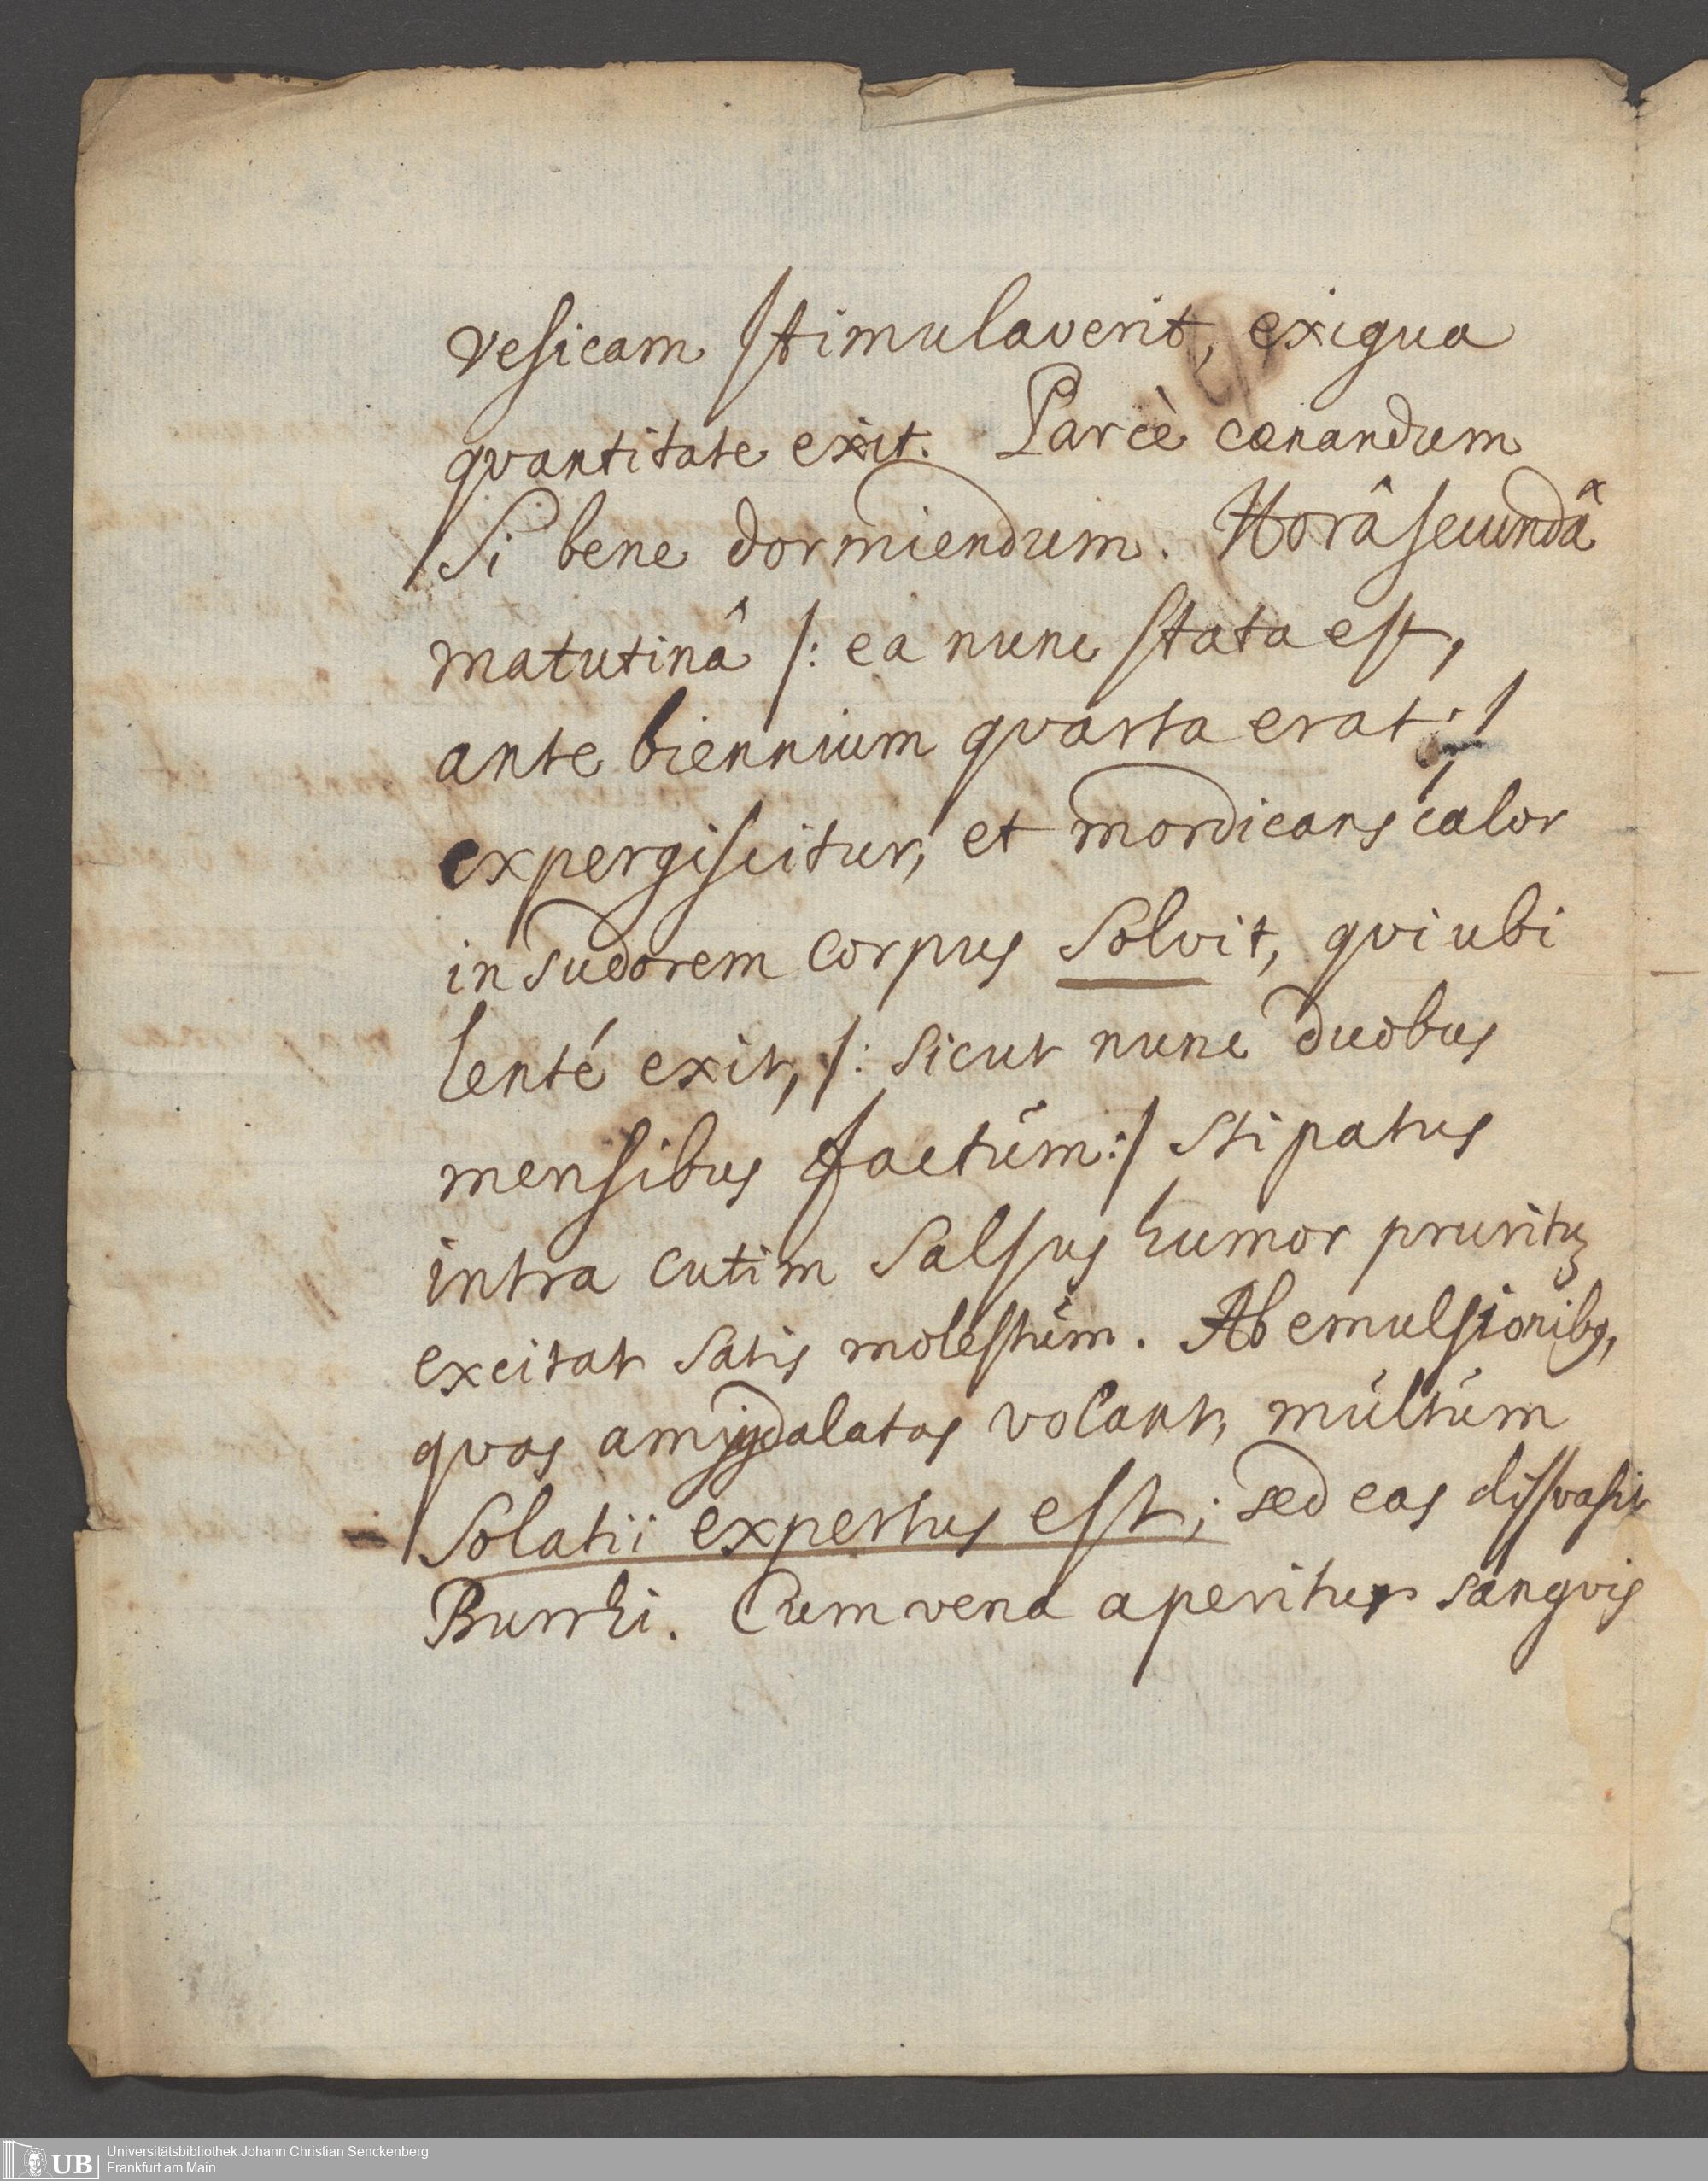 vesicam stimulaverit, exigua
quantitate exit. Parcè cænandum
si bene dormiendum. Horâ secundâ
matutinâ /: ea nunc stata est,
ante biennium quarta erat :/
expergiscitur, et mordicans calor
in sudorem corpus solvit, qui ubi
lenté exit, /: sicut nunc duobus
mensibus factúm :/ stipatus
intra cutim salsus humor pruritų
excitat satis molestúm. Ab emulsionibq,
quas amijgdalatas volant, múltúm
solatii expertus est; sed eas dissvasit
Burrhi. Cum vena aperitur sangvis
UB Universitätsbibliothek Johann Christian Senckenberg
Frankfurt am Main